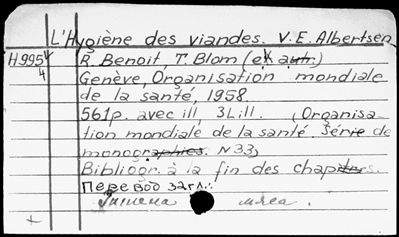 L'Hygiène des viandes. V. E. Albertsen,
H 995 R. Benoit, T. Blom (et autr.)
4 Genève, Organisation mondiale
de la santé, 1958.
561p. avec ill, 3 L. ill. (Organisa-
tion mondiale de la santé. Série de
monographies. N 33)
Bibliogr. à la fin des chapitres.
Перевод загл.:
Гигиена мяса.